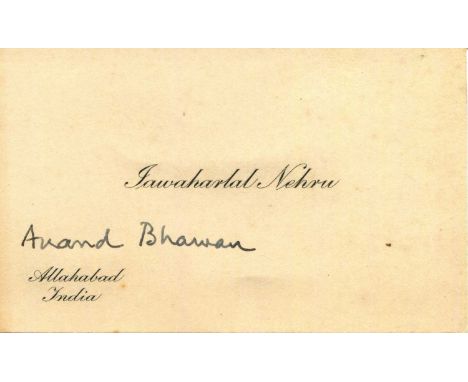 Jawaharlal Nehru
Anand Bhawan
Allahabad
India